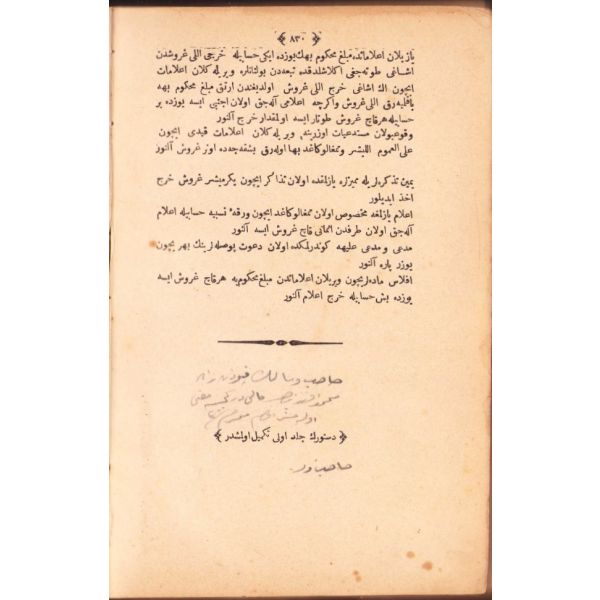 ﴿ ٨٣٠ ﴾
یازیلان اعلاماتده مبلغ محکوم بهك یوزده ایکی حسابیله خرجی اللی غروشدن
اشاغی طوته‌جغی اکلاشلدقده تبعه‌دن بولنانلره ویریله کلان اعلامات
ایچون اك اشاغی خرج اللی غروش اولدیغندن ارتق مبلغ محکوم بهه
باقلمیه‌رق اللی غروش واکرچه اعلامی آله‌جق اولان اجنبی ایسه یوزده بر
حسابیله هر قاچ غروش طوتار ایسه اولمقدار خرج آلنور
وقوعبولان مستدعیات اوزرینه ویریله کلان اعلامات قیدی ایچون
علی العموم اللیشر وتمغالو کاغد بها اوله‌رق بشقه‌جه‌ده اونر غروش آلنور
یمین تذکره‌لریله ممیزلره یازلمقده اولان تذاکر ایچون یکرمیشر غروش خرج
اخذ ایدیلور
اعلام یازلمغه مخصوص اولان تمغالو کاغد ایچون ورقهٔ نسبیه حسابیله اعلام
آله‌جق اولان طرفدن اثمانی قاچ غروش ایسه آلنور
مدعی و مدعی علیهه کوندرلمکده اولان دعوت پوصله‌لرینك بهری چون
یوزر پاره آلنور
افلاس ماده‌لریچون ویریلان اعلاماتدن مبلغ محکوم به هر قاچ غروش ایسه
یوزده بش حسابیله خرج اعلام آلنور
صاحب ومالك
﴿ دستورك جلد اولی تکمیل اولمشدر ﴾
صاحب